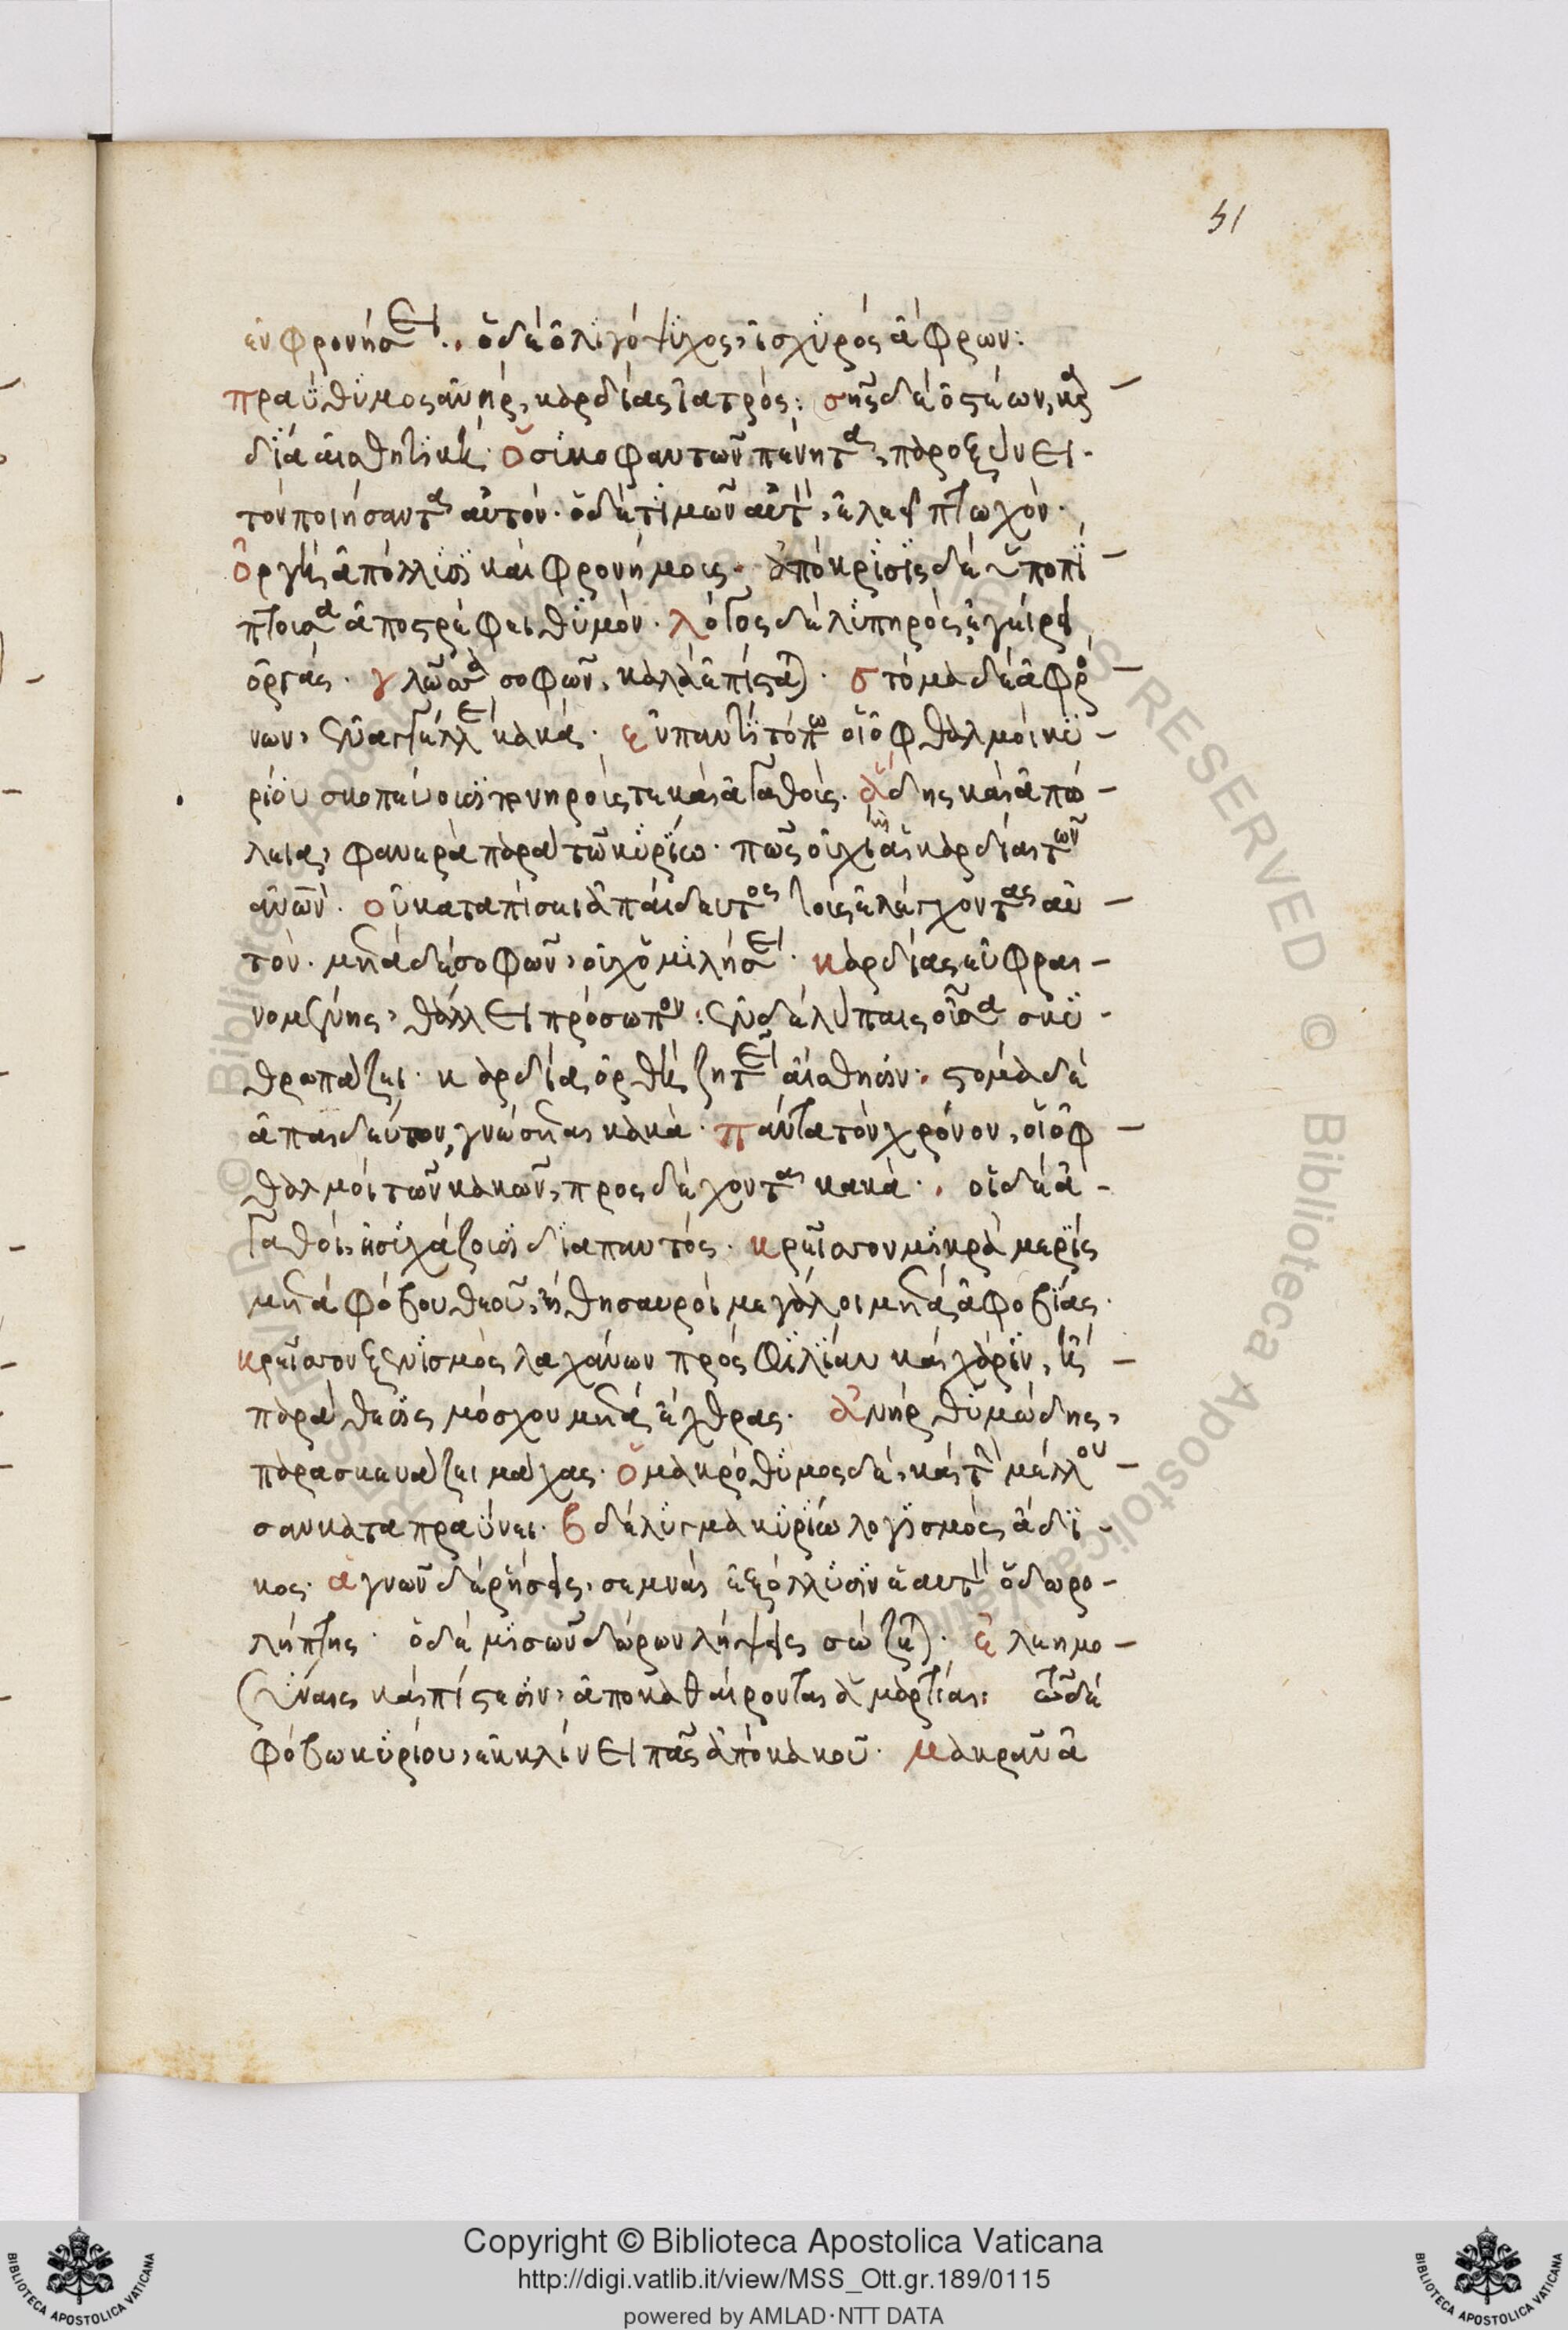 51
ἐν φρονήσει· ὁ δὲ ὀλιγόψυχος, ἰσχυρὸς ἄφρων:
πραΰθυμος ἀνὴρ, καρδίας ἰατρός: σὴς δὲ ὀστέων, καρ
δία αἰσθητική· ὁ συκοφαντῶν πένητα, παροξύνει
τὸν ποιήσαντα αὐτόν· ὁ δὲ τιμῶν αὐτὸν, ἐλεεῖ πτωχόν·
ὀργὴ ἀπόλλυσι καὶ φρονήμους· ἀπόκρισις δὲ ὑποπί
πτουσα ἀποστρέφει θυμόν· λόγος δὲ λυπηρὸς ἐγείρει
ὀργάς· γλῶσσα σοφῶν, καλὰ ἐπίσταται· στόμα δὲ ἀφρό
νων, ἀναγγέλλει κακά· ἐν παντὶ τόπω οἱ ὀφθαλμοὶ κυ
ρίου σκοπεύουσι πονηρούς τε καὶ ἀγαθούς· ἅδης καὶ ἀπώ
λεια, φανερὰ παρὰ τῶ κυρίω· πῶς οὐχὶ καὶ αἱ καρδίαι τῶν
ἀνων· οὐκ ἀγαπήσει ἀπαίδευτος τοὺς ἐλέγχοντας αὐ
τόν· μετὰ δὲ σοφῶν, οὐχ ὁμιλήσει· καρδίας εὐφραι
νομένης, θάλλει πρόσωπον: ἐν δὲ λύπαις οὖσα σκυ
θρωπάζει· καρδία ὀρθὴ ζητεῖ αἴσθησιν· στόμα δὲ
ἀπαιδεύτου, γνώσεται κακά· πάντα τὸν χρόνον, οἱ ὀφ
θαλμοὶ τῶν κακῶν, προσδέχονται κακά· οἱ δὲ ἀ
γαθοὶ, ἡσυχάζουσι διαπαντός· κρεῖσσον μικρὰ μερὶς
μετὰ φόβου θεοῦ, ἢ θησαυροὶ μεγάλοι μετὰ ἀφοβίας·
κρεῖσσον ξενισμὸς λαχάνων πρὸς φιλίαν καὶ χάριν, ἢ
παράθεσις μόσχου μετὰ ἔχθρας· ἀνὴρ θυμώδης,
παρασκευάζει μάχας· ὁ μακρόθυμος δὲ, καὶ τὴν μέλλου
σαν καταπραΰνει· βδέλυγμα κυρίω λογισμὸς ἄδι
κος· ἁγνῶν δὲ ῥήσεις, σεμναί· ἐξόλλυσιν ἑαυτὸν ὁ δωρο
λήπτης· ὁ δὲ μισῶν δώρων λήψεις σώζεται· ἐλεημο
σύναις καὶ πίστεσιν, ἀποκαθαίρονται ἁμαρτίαι: τῶ δὲ
φόβω κυρίου, ἐκκλίνει πᾶς ἀπὸ κακοῦ· μακρὰν ἀ
Copyright © Biblioteca Apostolica Vaticana
http://digi.vatlib.it/view/MSS_Ott.gr.189/0115
powered by AMLAD·NTT DATA